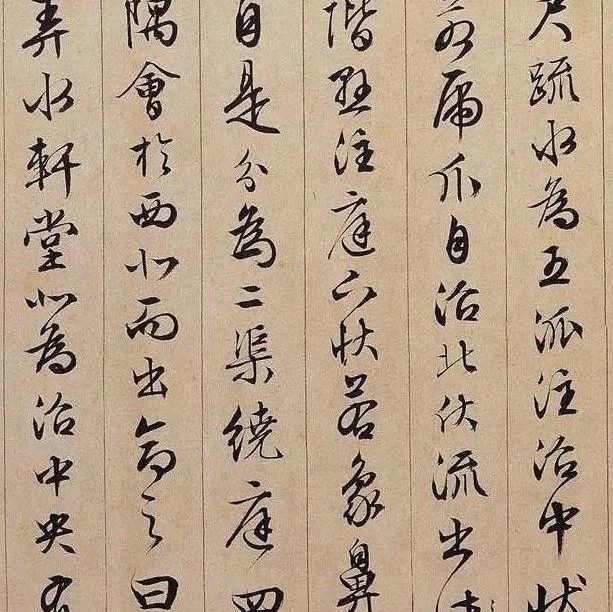 尺疏水為五派注沼中狀
若虎爪自沼北伏流出
階懸注庭下狀若象鼻
自是分為二渠繞庭四
隅會於西北而出命之曰
弄水軒堂北為沼中央有